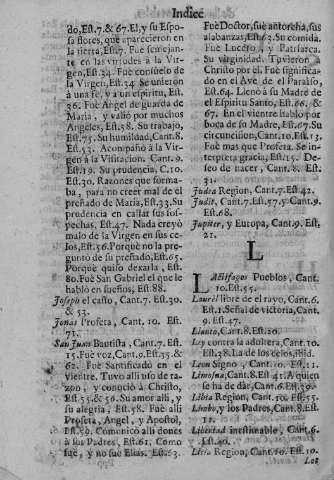 Indice
do, Est.7. & 67. El, y su Espo-
sa flores, que aparecieron en
la tierra, Est.7. Fue semejan-
te en las virtudes à la Vir-
gen, Est.34. Fue consuelo de
la Virgen, Est.34. Se unieron
à una fe, y à un espiritu, Est.
36. Fuè Angel de guarda de
Maria, y valiò por muchos
Angeles, Est.38. Su trabajo,
Est.75. Su humildad, Cant.8.
Est.53. Acompañò à la Vir-
gen à la Visitacion. Cant.9.
Est.19. Su prudencia, C.10.
Est.30. Razones que forma-
ba, para no creer mal de el
preñado de Maria, Est.33. Su
prudencia en callar sus sos-
pechas. Est.47. Nada creyò
malo de la Virgen en sus ce-
los, Est.56. Porquè no la pre-
guntò de su preñado, Est.65.
Porque quiso dexarla, Est.
80. Fuè San Gabriel el que le
hablò en sueños, Est.88.
Joseph el casto, Cant.7. Est.30.
& 53.
Jonas Profeta, Cant. 10. Est.
71.
San Juan Bautista, Cant.7. Est.
15. Fuè voz, Cant.6. Est.35. &
62. Fuè Santificado en el
vientre. Tuvo alli uso de ra-
zon, y conociò à Christo,
Est.55. & 56. Su amor alli, y
su alegria, Est.58. Fuè alli
Profeta, Angel, y Apostol,
Est.59. Comunicò alli dones
à sus Padres, Est.61. Como
fuè, y no fuè Elias. Est.63.
Fuè Doctor, fuè antorcha, sus
alabanzas, Est.63. Su comida.
Fuè Lucero, y Patriarca.
Su virginidad. Tuvieron à
Christo por el. Fuè significa-
do en el Ave de el Paraìso,
Est.64. Llenò à su Madre de
el Espiritu Santo, Est.66. &
67. En el vientre hablò por
boca de su Madre, Est.67. Su
circuncision, Cant.10. Est.13.
Fuè mas que Profeta. Se in-
terpreta gracia, Est.15. De-
seo de nacer, Cant.8. Est.
31.
Judea Region, Cant.7. Est.42.
Judit, Cant.7. Est.57. y Cant.9.
Est.68.
Jupiter, y Europa, Cant.9. Est.
21.
L
LActifagos Pueblos, Cant.
10. Est.55.
Laurèl libre de el rayo, Cant.6.
Est.1. Señal de victoria, Cant.
9. Est.47.
Llanto, Cant.8. Est.20.
Ley contra la adultera, Cant.10.
Est.38. La de los celos, ibid.
Leon Signo, Cant.10. Est.11.
Limosna, Cant.8. Est.41. A quien
se ha de dàr, Cant.6. Est.30.
Libia Region, Cant.10. Est.55.
Limbo, y los Padres, Cant.8. Est.
11.
Libertad inestimable, Cant.6.
Est.40.
Region, Cant.10. Est.10.
Los